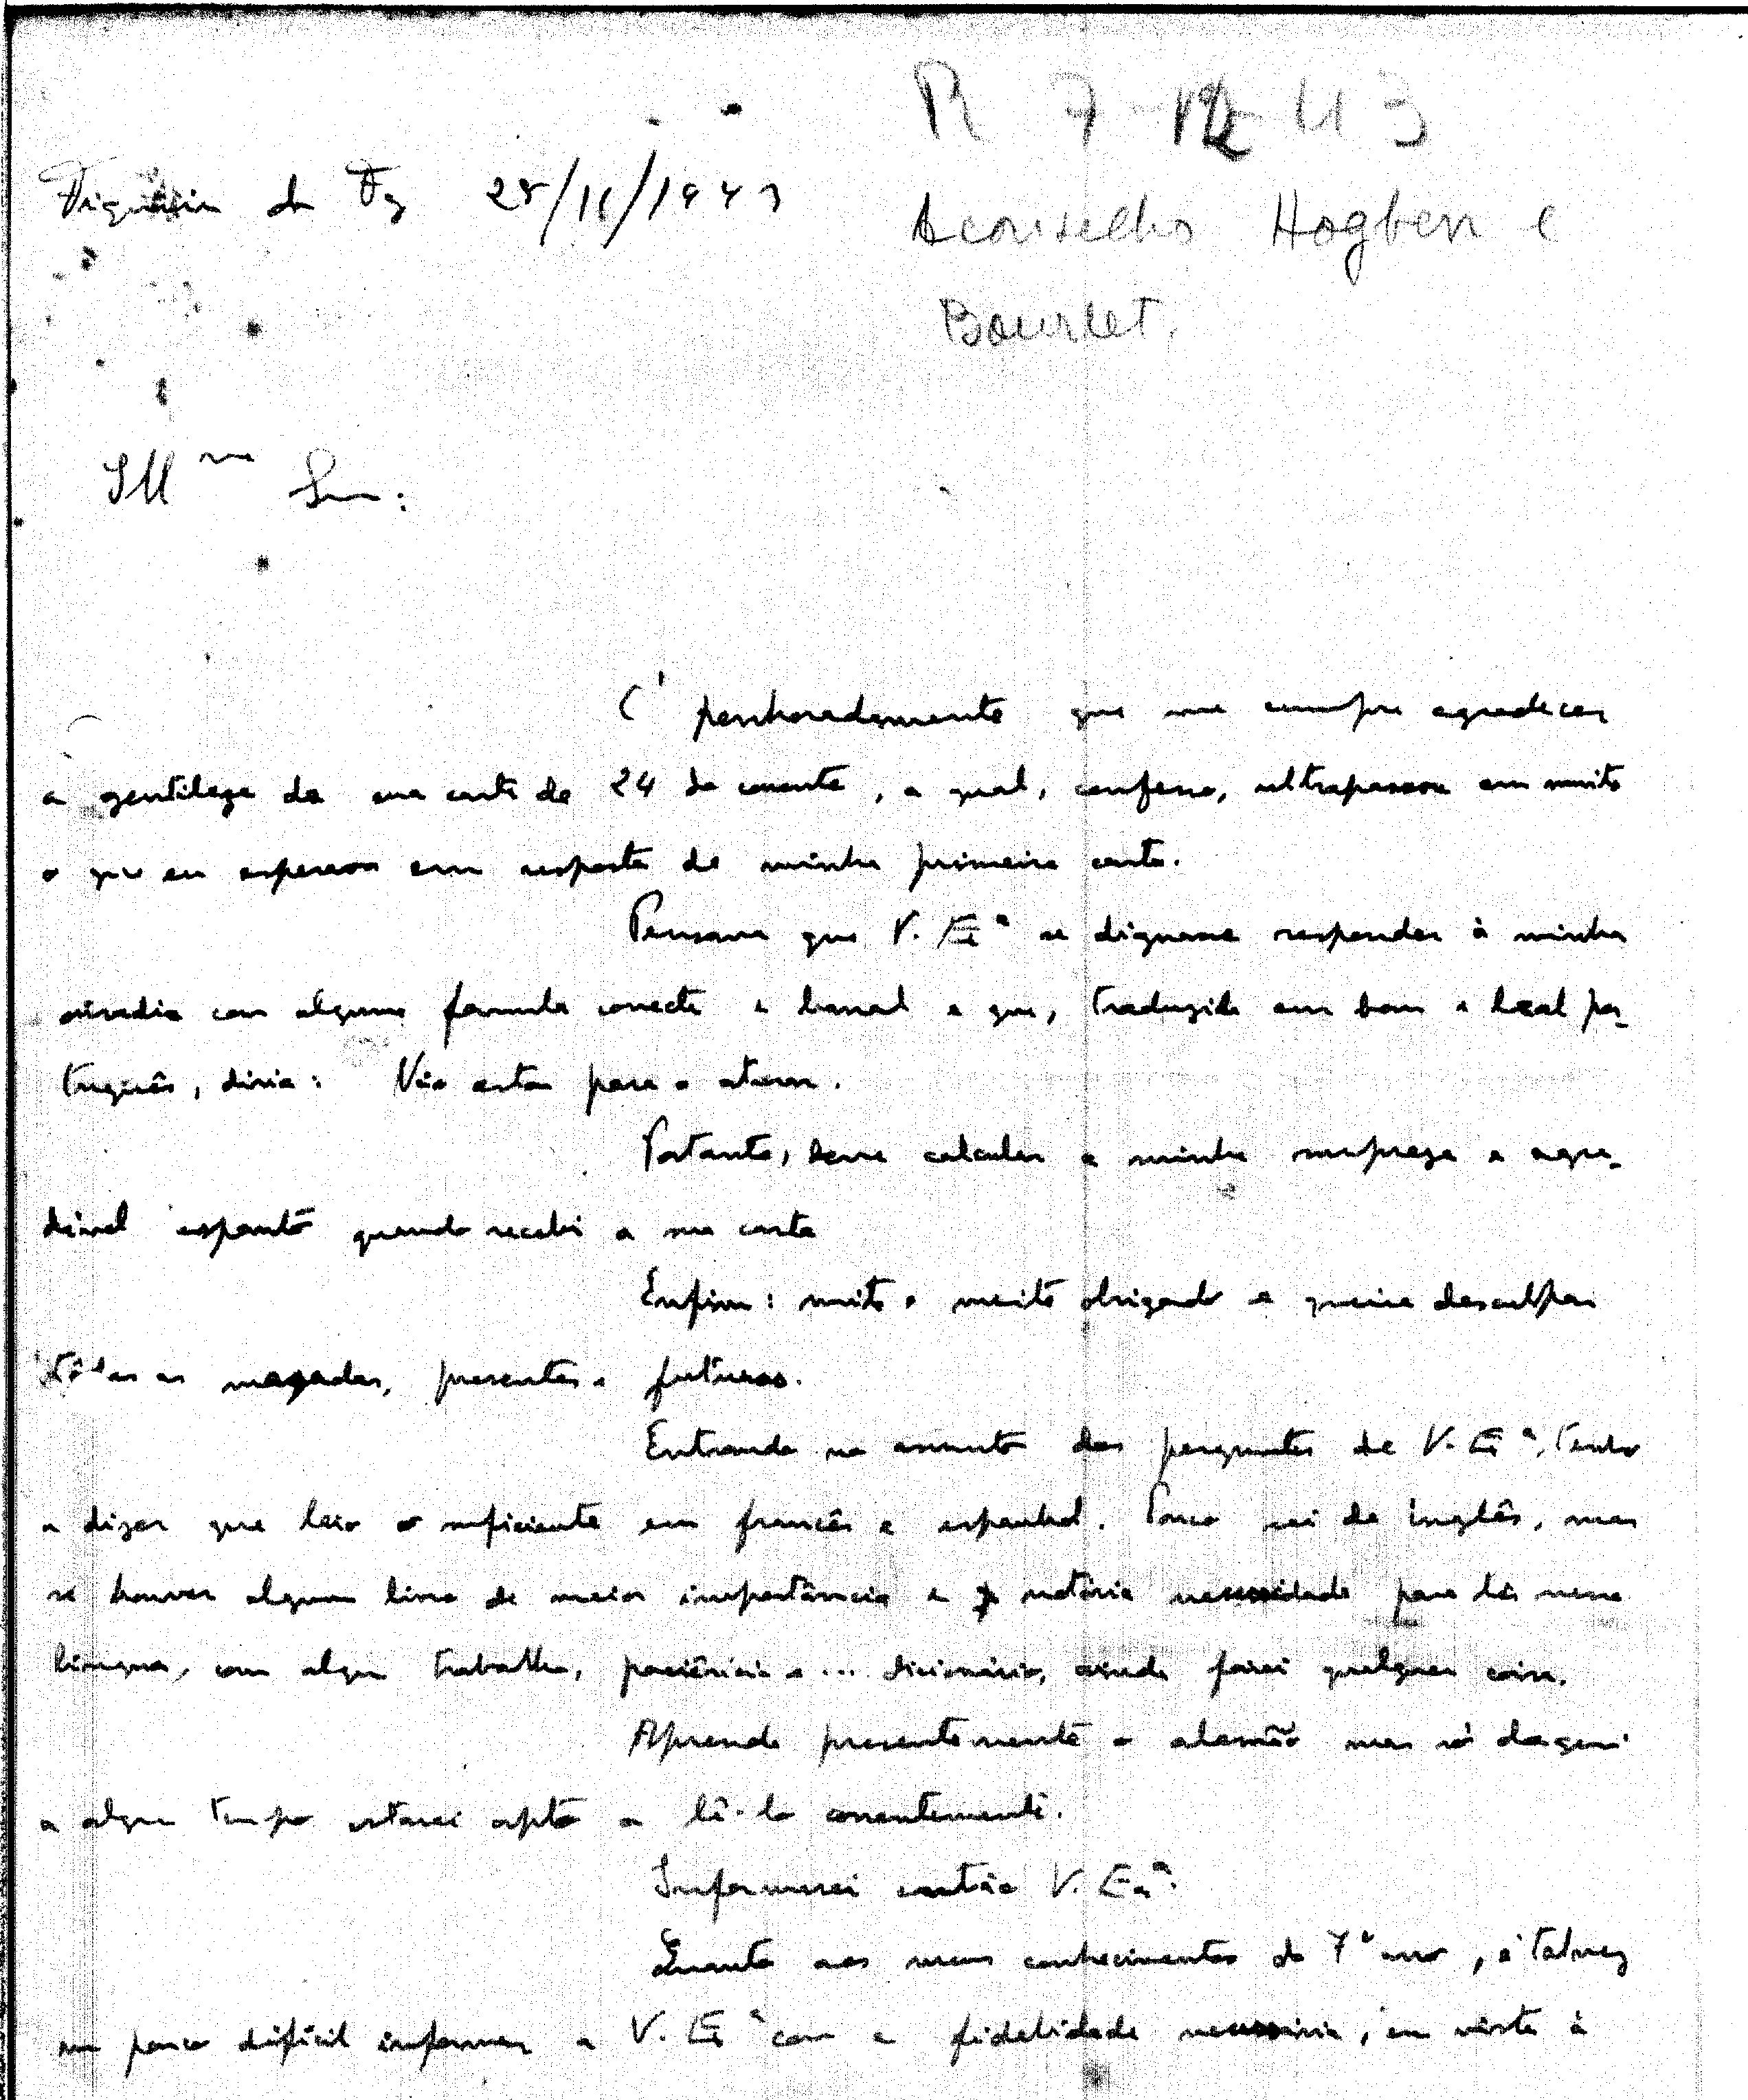 R 7-12-43
Figueira da Foz 25/11/1943
Aconselho Hogben e
Bourlet.
Ill^mo Snr:
É penhoradamente que me cumpre agradecer
a gentileza da sua carta de 24 do corrente, a qual, confesso, ultrapassou em muito
o que eu esperava em resposta de minha primeira carta.
Pensava que V. Ex^a se dignasse responder à minha
ousadia com alguma formula correcta e banal e que, traduzida em bom e leal por-
tuguês, diria: Não estou para o aturar.
Portanto, deve calcular a minha surpreza e agra-
dável espanto quando recebi a sua carta
Enfim: muito e muito obrigado e queira desculpar
tôdas as maçadas, presentes e futuras.
Entrando no assunto das perguntas de V. Ex^a, tenho
a dizer que leio o suficiente em francês e espanhol. Pouco sei de inglês, mas
se houver algum livro de maior importância e notória necessidade para lêr nessa
lingua, com algum trabalho, paciência e ... dicionário, ainda farei qualquer coisa.
Aprendo presentemente o alemão mas só daqui
a algum tempo estarei apto a lê-lo correntemente.
Informarei então V. Ex^a.
Quanto aos meus conhecimentos do 7º ano, é talvez
um pouco difícil informar a V. Ex^a com a fidelidade necessária, em vista à